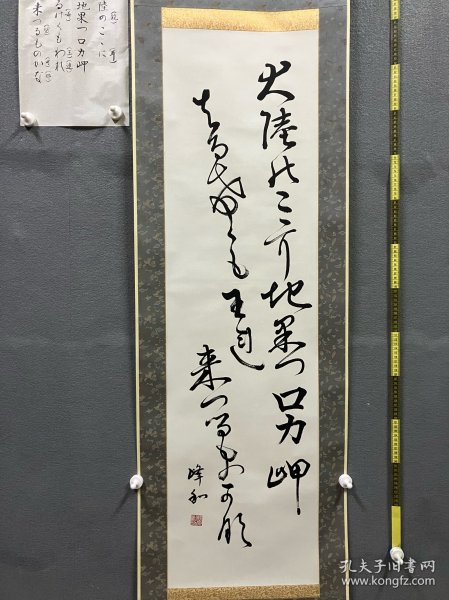 大陸のここに地果つロカ岬
はるけくも王連
来つるもの可那
峰和
陸のここに
地果つロカ岬
るけくもわれ
来つるものかな
孔夫子旧书网
www.kongfz.com